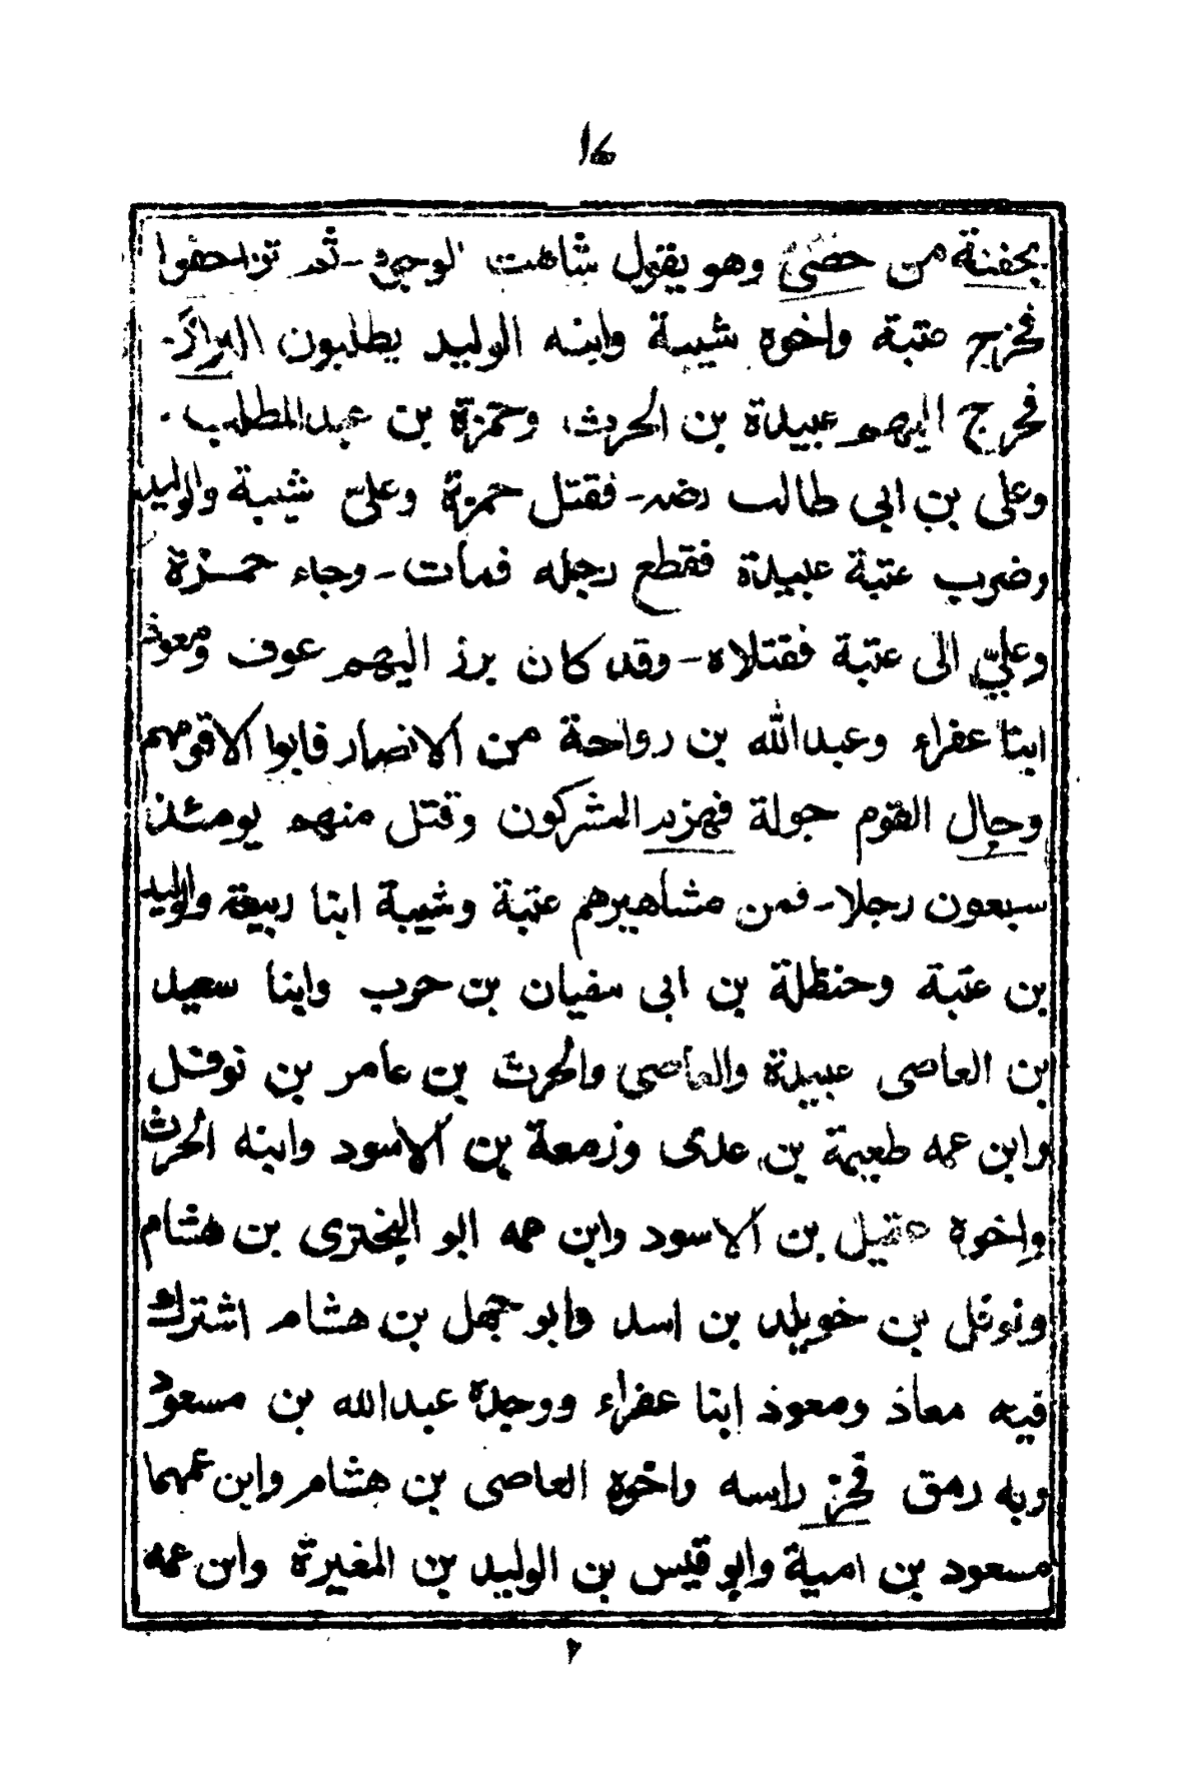 ١٤
بحفنة من حصى وهو يقول شاهت الوجوه - ثم تزاحفوا
فخرج عتبة واخوه شيبة وابنه الوليد يطلبون البراز -
فخرج اليهم عبيدة بن الحرث وحمزة بن عبد المطلب .
وعلى بن ابى طالب رضه - فقتل حمزة وعلىّ شيبة والوليد
وضرب عتبة عبيدة فقطع رجله فمات - وجاء حمزة
وعلىّ الى عتبة فقتلاه - وقد كان برز اليهم عوف ومعوذ
ابنا عفراء وعبد الله بن رواحة من الانصار فابوا الا قومهم
وجال القوم جولة فهزم المشركون وقتل منهم يومئذ
سبعون رجلا - فمن مشاهيرهم عتبة وشيبة ابنا ربيعة والوليد
بن عتبة وحنظلة بن ابى سفيان بن حرب وابنا سعيد
بن العاصى عبيدة والعاصى والحرث بن عامر بن نوفل
وابن عمه طعيمة بن عدى وزمعة بن الاسود وابنه الحرث
واخوه عقيل بن الاسود وابن عمه ابو البخترى بن هشام
ونوفل بن خويلد بن اسد وابو جهل بن هشام اشترك
فيه معاذ ومعوذ ابنا عفراء ووجده عبد الله بن مسعود
وبه رمق فحز راسه واخوه العاصى بن هشام وابن عمهما
مسعود بن امية وابو قيس بن الوليد بن المغيرة وابن عمه
٢